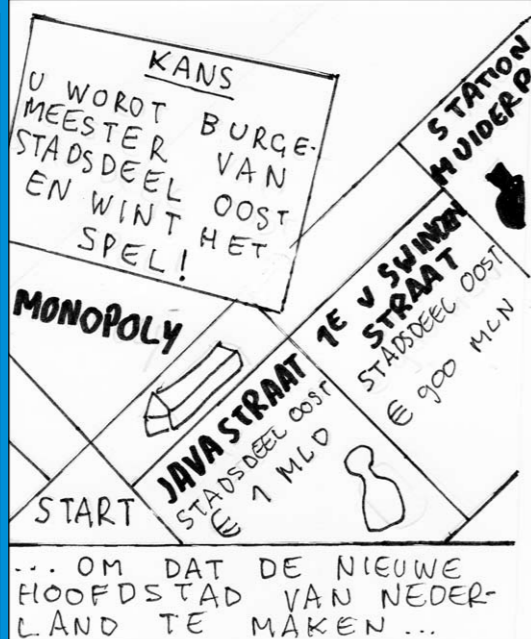 KANS
U WORDT BURGE-
MEESTER VAN
STADSDEEL OOST
EN WINT HET
SPEL!
STATION
MUIDERP
1E V SWINDEN
STRAAT
STADSDEEL OOST
€ 900 MLN
MONOPOLY
JAVASTRAAT
STADSDEEL OOST
€ 1 MLD
START
... OM DAT DE NIEUWE
HOOFDSTAD VAN NEDER-
LAND TE MAKEN...